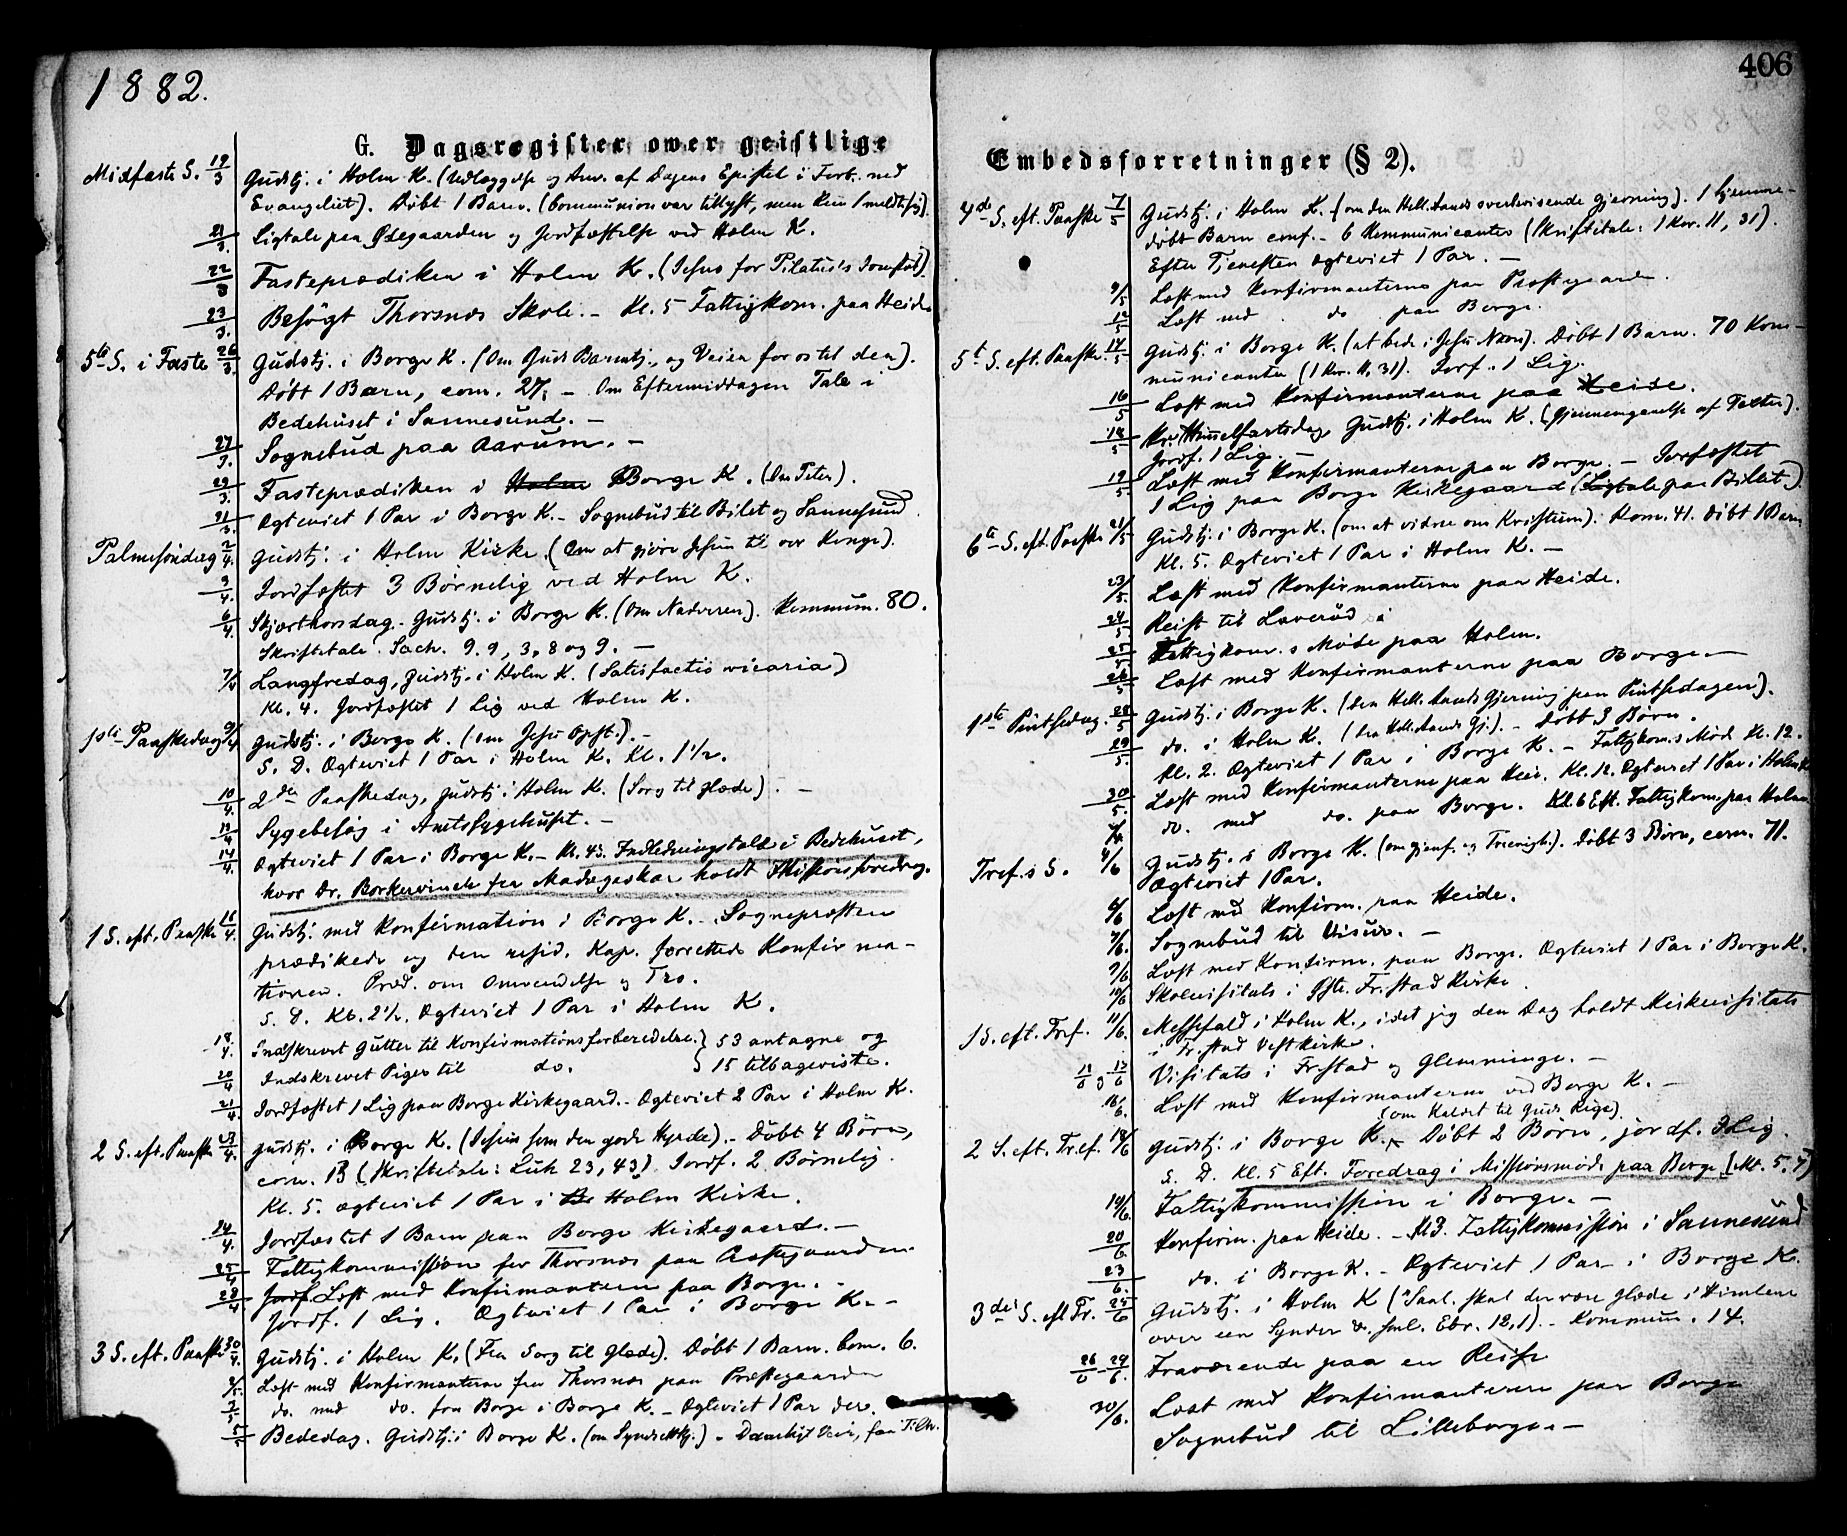 1882.
G. Dagsregister over geistlige
Midfaste S. 19/3 Gudstj. i Holm K. (Udlæggelse og Anv. af Dagens Epistel i Forb. med
Evangeliet). Døbt 1 Barn. (Communion var tillyst, men kun 1 meldt sig).
21/3. Ligtale paa Ødegaarden og Jordfæstelse ved Holm K.
22/3 Fasteprædiken i Holm K. (Jesus for Pilatus's Domstol)
23/3. Besøgt Thorsnæs Skole. – Kl. 5 Fattigkom. paa Heide
5te S. i Faste 26/3. Gudstj. i Borge K. (Om Guds Barmhj. og Veien for os til den).
Døbt 1 Barn, com. 27. – Om Eftermiddagen Tale i
Bedehuset i Sannesund. –
27/3. Sognebud paa Aarum. –
29/3. Fasteprædiken i Holm Borge K. (Om Peter).
31/3. Ægteviet 1 Par i Borge K. – Sognebud til Bilet og Sannesund.
Palmesøndag 2/4. Gudstj. i Holm Kirke. (Om at gjøre Jesus til vor Konge).
3/4. Jordfæstet 3 Børnelig ved Holm K.
6/4. Skjærthorsdag. Gudstj. i Borge K. (Om Nadveren). Kommun. 80.
Skriftetale. Sach. 9. 9, 3, 8 og 9. –
7/4 Langfredag, Gudstj. i Holm K. (Satisfactio vicaria)
Kl. 4. Jordfæstet 1 Lig ved Holm K.
1ste Paaskedag 9/4 Gudstj. i Borge K. (Om Jesu Opst.). –
S. D. Ægteviet 1 Par i Holm K. Kl. 1 1/2.
10/4. 2den Paaskedag, Gudstj. i Holm K. (Sorg til Glæde). –
Sygebesøg i Amtssygehuset. –
14/4. Ægteviet 1 Par i Borge K. – Indledningstale i Bedehuset,
hvor Dr. Borkervinck fra Madagaskar holdt Missionsforedrag.
1 S. eft. Paaske 16/4. Gudstj. med Konfirmation i Borge K. Sognepræsten
prædikede og den resid. Kap. forrettede Konfirma-
tionen. Præd. om Omvendelse og Tro.
S. D. Kl. 2 1/2. Ægteviet 1 Par i Holm K.
18/4. Indskrevet Gutter til Konfirmationsforberedelse. } 53 antagne og
20/4 Indskrevet Piger til do. } 15 tilbageviste.
21/4. Jordfæstet 1 Lig paa Borge Kirkegaard. – Ægteviet 2 Par i Holm K.
2 S. eft. Paaske 23/4. Gudstj. i Borge K. (Jesus som den gode Hyrde). – Døbt 4 Børn,
com. 13 (Skriftetale: Luk 23, 43) Jordf. 2 Børnelig.
Kl. 5. Ægteviet 1 Par i Bo Holm Kirke.
24/4. Jordfæstet 1 Barn paa Borge Kirkegaard. –
25/4 Fattigkommission for Thorsnæs paa
28/4. Jordf. Læst med Konfirmanterne paa Borge. –
Jordf. 1 Lig. Ægteviet 1 Par i Borge K. –
3 S. eft. Paaske 30/4. Gudstj. i Holm K. (Fra Sorg til Glæde). Døbt 1 Barn. Com. 6.
2/5. Læst med Konfirmanterne fra Thorsnæs paa Præstegaarden
3/5 do. med do. fra Borge i Borge K. – Ægteviet 1 Par der.
5/5 Bededag. Gudstj. i Borge K. – Daarligt Veir, faa Tilh.
406
Embedsforretninger (§ 2).
4de S. eft. Paaske 7/5 Gudstj. i Holm K. (om den Hell. Aands overbevisende Gjerning). 1 hjemme-
døbt Barn conf. – 6 Kommunicanter (Skriftetale: 1 Kor. 11, 31).
Efter Tjenesten Ægteviet 1 Par. –
9/5 Læst med Konfirmanterne paa Præstegaarden.
12/5. Læst med do paa Borge.
5te S. eft. Paaske 14/5. Gudstj. i Borge K. (at bede i Jesu Navn). Døbt 1 Barn. 70 Kom-
municanter (1 Kor. 11, 31). Jorf. 1 Lig.
16/5 Læst med Konfirmanterne paa Heide.
18/5 Kr. Himmelfartsdag Gudstj. i Holm K. (Gjennemgaaelse af Texten).
Jordf. 1 Lig. –
19/5. Læst med Konfirmanterne paa Borge. – Jordfæstet
1 Lig paa Borge Kirkegaard (Ligtale paa Bilet).
6te S. eft. Paaske 21/5 Gudstj. i Borge K. (om at vidne om Kristum). Kom. 41. Døbt 1 Barn
Kl. 5. Ægteviet 1 Par i Holm K. –
23/5. Læst med Konfirmanterne paa Heide.
24/5 Reist til Laverød
25/5. Fattigkom.s Møde paa Holm.
26/5 Læst med Konfirmanterne paa Borge. –
1ste Pintsedag. 28/5 Gudstj. i Borge K. (Den Hell. Aands Gjerning paa Pintsedagen).
29/5. do. i Holm K. (den Hell. Aands Gj.). – Døbt 3 Børn.
Kl. 2. Ægteviet 1 Par i Borge K. – Fattigkom.s Møde Kl. 12.
30/5. Læst med Konfirmanterne paa Heid. Kl. 12. Ægteviet 1 Par i Holm K
do. med do. paa Borge. Kl. 6 Eft. Fattigkom. paa Holm
Tref. s S. 4/6 Gudstj. i Borge K. (om Gjenf. og Treenigh.). Døbt 3 Børn, com. 71.
Ægteviet 1 Par.
6/6 Læst med Konfirm. paa Heide.
7/6. Sognebud til Visur. –
9/6 Læst med Konfirm. paa Borge. Ægteviet 1 Par i Borge K.
10/6 Skolevisitats i Gl. Fr.stad Kirke.
1 S. eft. Tref. 11/6. Messefald i Holm K., idet jeg den Dag holdt Kirkevisitats
i Fr.stad Vestkirke.
12/6 og 13/6 Visitats i Fr.stad og Glemminge. –
16/6. Læst med Konfirmanterne ved Borge K. –
(om Kaldet til Guds Rige).
2 S. eft. Tref. 18/6 Gudstj. i Borge K. Døbt 2 Børn, jordf. 3 Lig.
S. D. Kl. 5 Eft. Foredrag i Missionsmøde paa Borge (Mt. 5, 7)
19/6. Fattigkommission i Borge. –
20/6. Konfirm. paa Heide. – Kl 3. Fattigkommission i Sannesund
23/6. do. i Borge K. – Ægteviet 1 Par i Borge K.
3die S. eft Tr. 25/6 Gudstj. i Holm K ("Saal. skal der være Glæde i Himlene
over een Synder &. sml. Ebr. 12, 1). – Kommun. 14.
26/6 – 29/6. Fraværende paa en Reise
30/6. Læst med Konfirmanterne paa Borge
Sognebud til Lilleborge. –